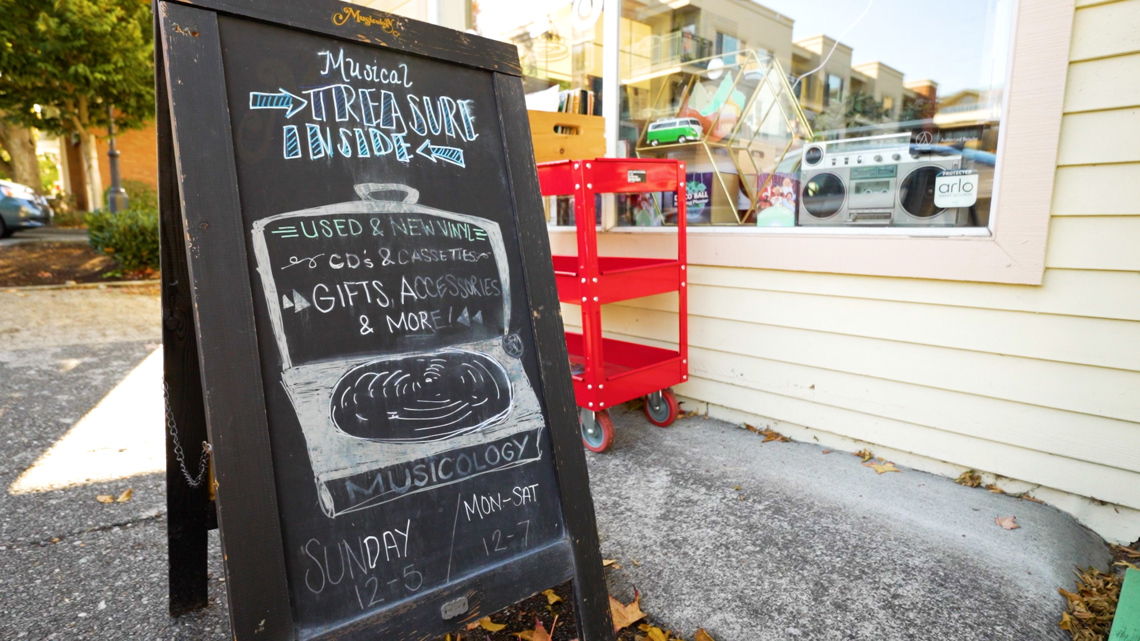 Musicology
Musical
TREASURE
INSIDE
USED & NEW VINYL
CD's & CASSETTES
GIFTS, ACCESSORIES
& MORE!
MUSICOLOGY
SUNDAY
12-5
MON-SAT
12-7
DISCO BALL
PROTECTED
arlo